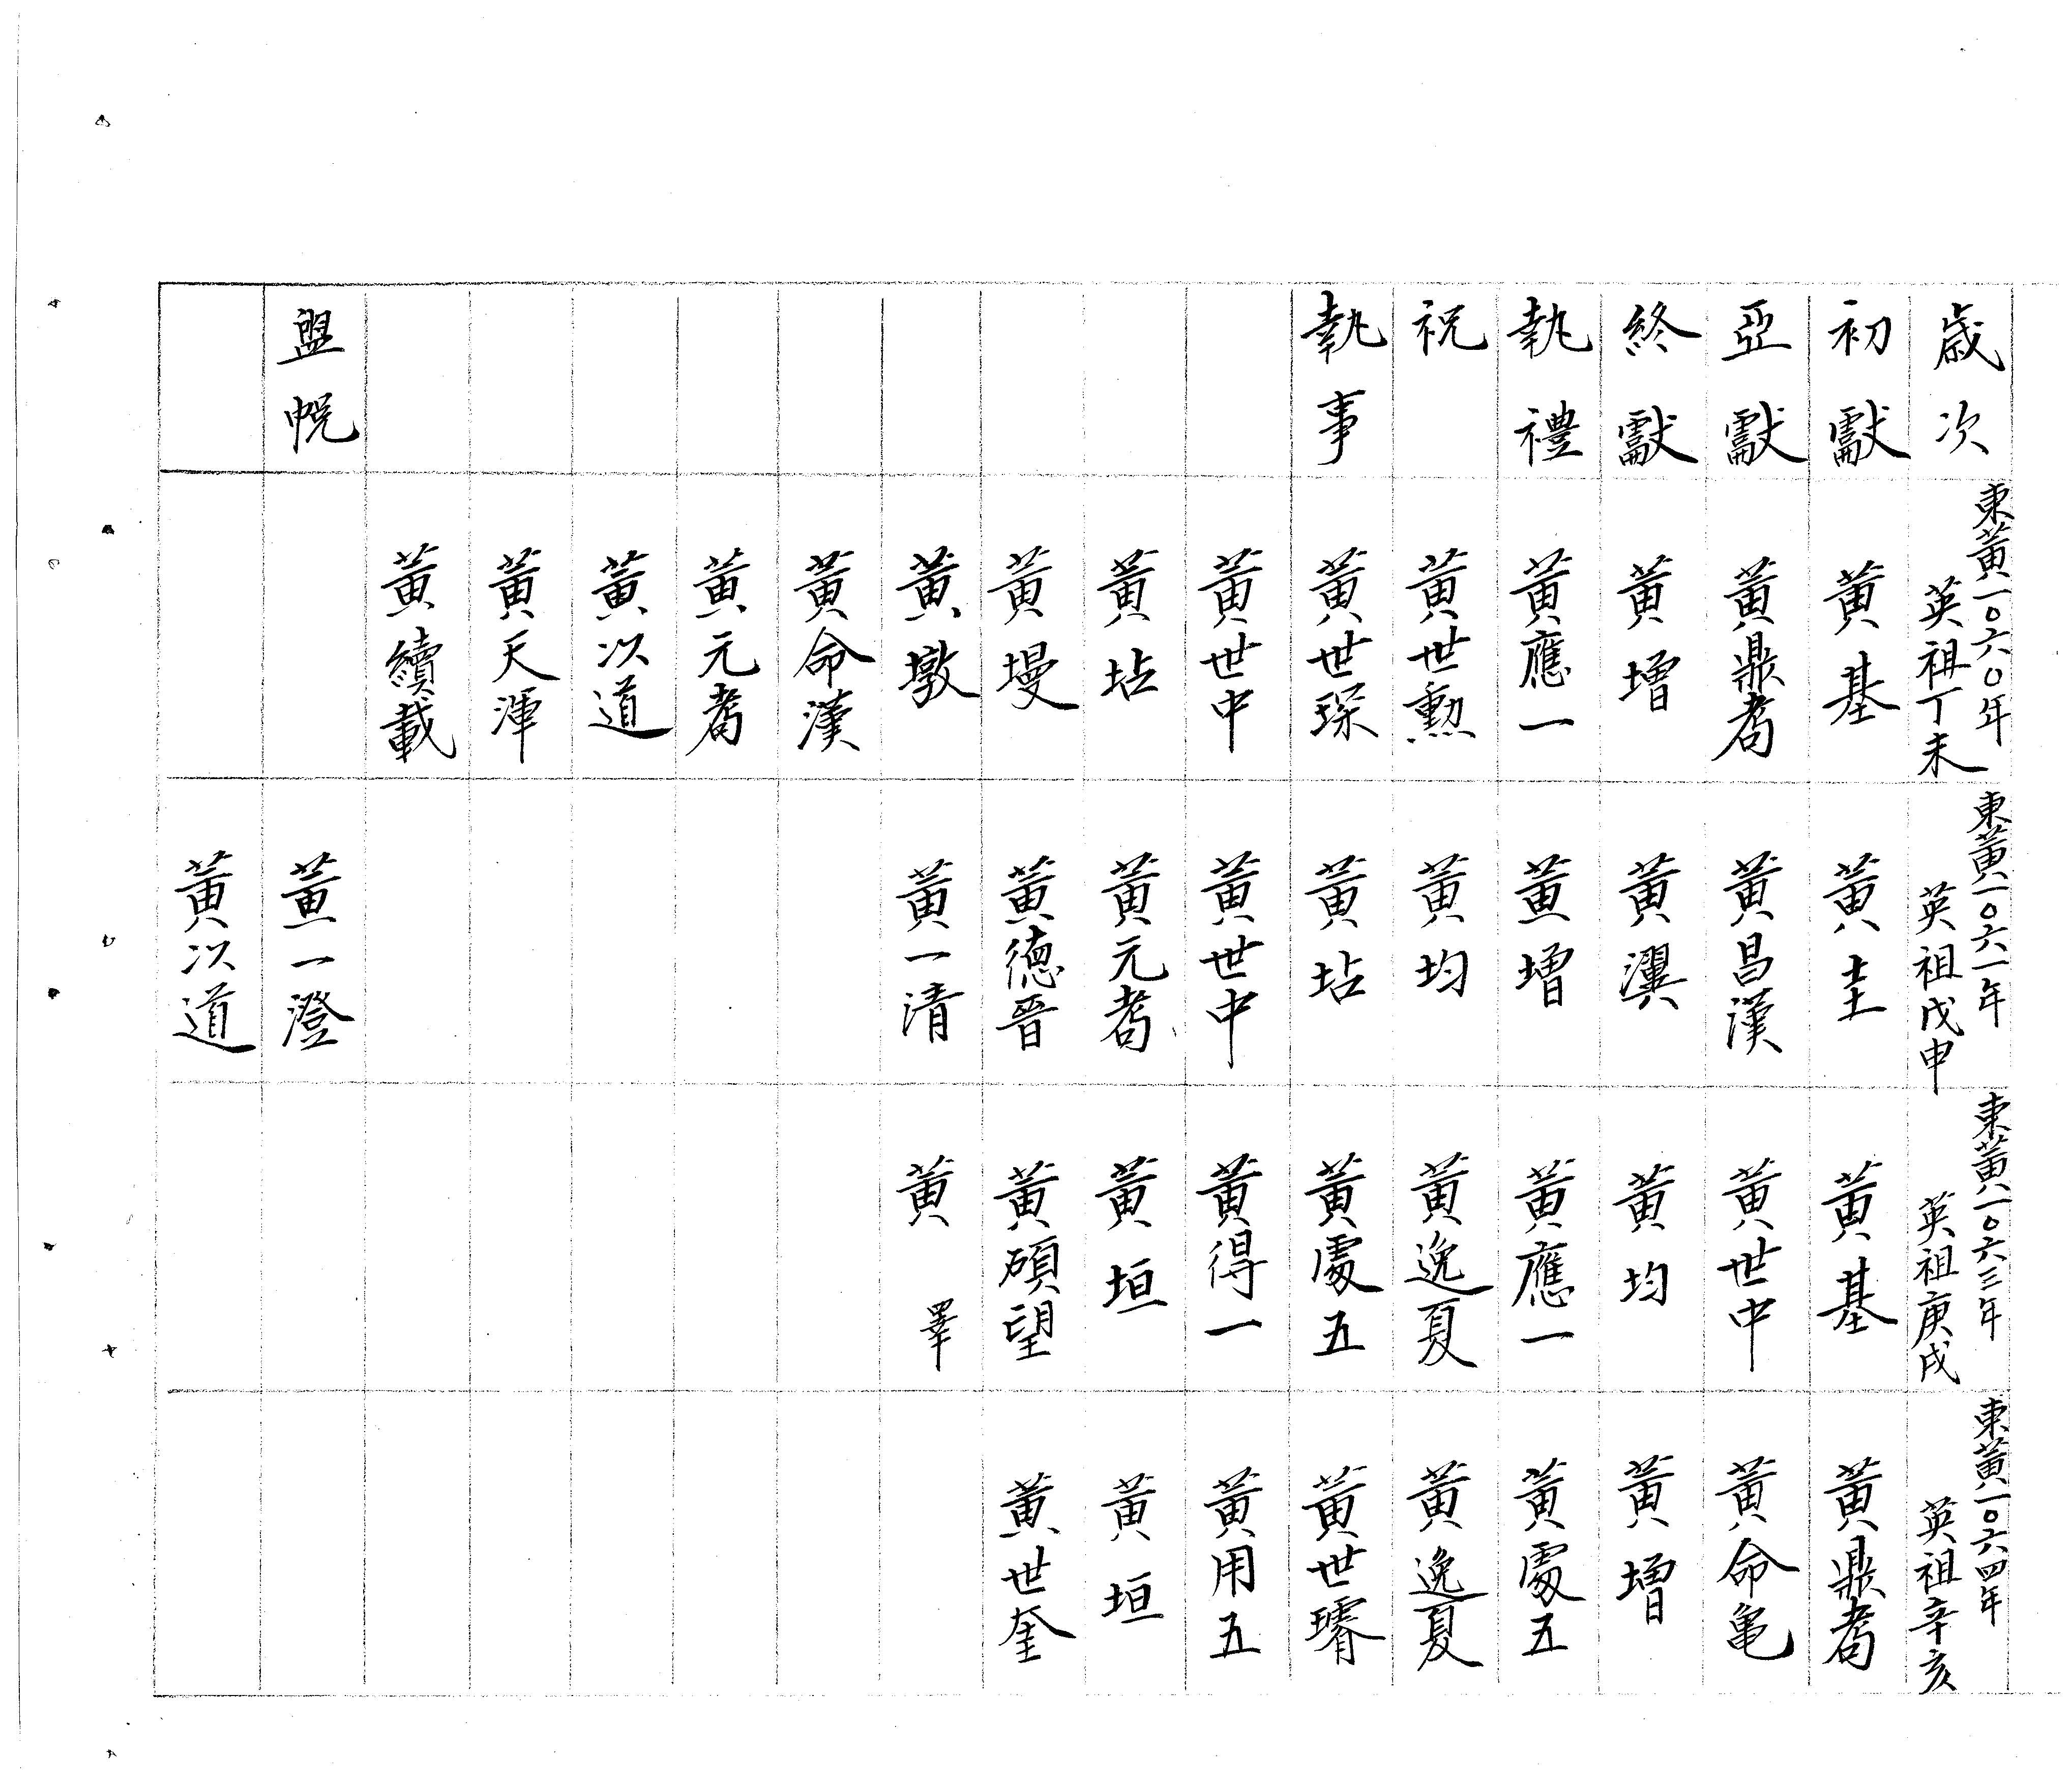 歳次
初獻
亞獻
終獻
執禮
祝
執事
盥帨
東黄一〇六〇年
英祖丁未
黄基
黄鼎耉
黄增
黄應一
黄世勳
黄世琛
黄世中
黄坫
黄墁
黄墩
黄命漢
黄元耉
黄以道
黄天渾
黄續載
東黄一〇六一年
英祖戊申
黄圭
黄昌漢
黄潩
黄增
黄均
黄坫
黄世中
黄元耉
黄德晉
黄一清
黄一澄
黄以道
東黄一〇六三年
英祖庚戌
黄基
黄世中
黄均
黄應一
黄逸夏
黄處五
黄得一
黄垣
黄碩望
黄睪
東黄一〇六四年
英祖辛亥
黄鼎耉
黄命亀
黄增
黄處五
黄逸夏
黄世璿
黄用五
黄垣
黄世奎